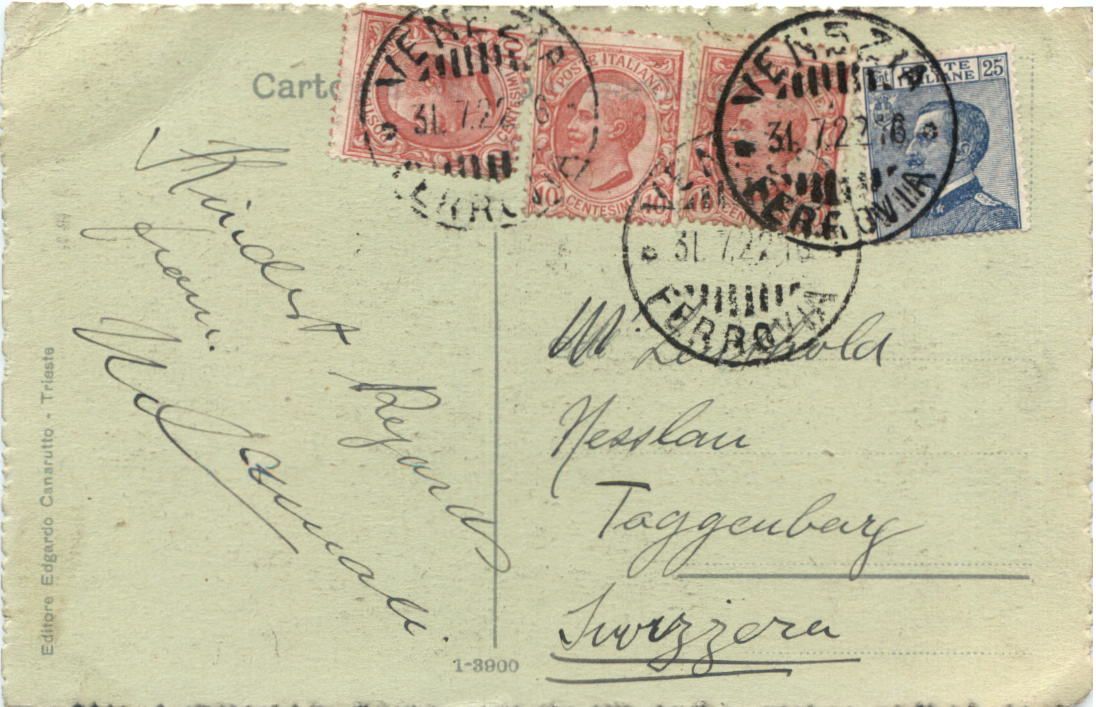 Carto
POSTE ITALIANE
CENTESIMI
10 CENTESIMI 10
POSTE ITALIANE 25
VENEZIA
31.7.22 16
FERROVIA
VENEZIA
31.7.22 16
FERROVIA
31.7.22 16
FERROVIA
Kindest Regards
from.
Mr Leopold
Nesslau
Toggenburg
Svizzera
Editore Edgardo Canarutto - Trieste
1-3900